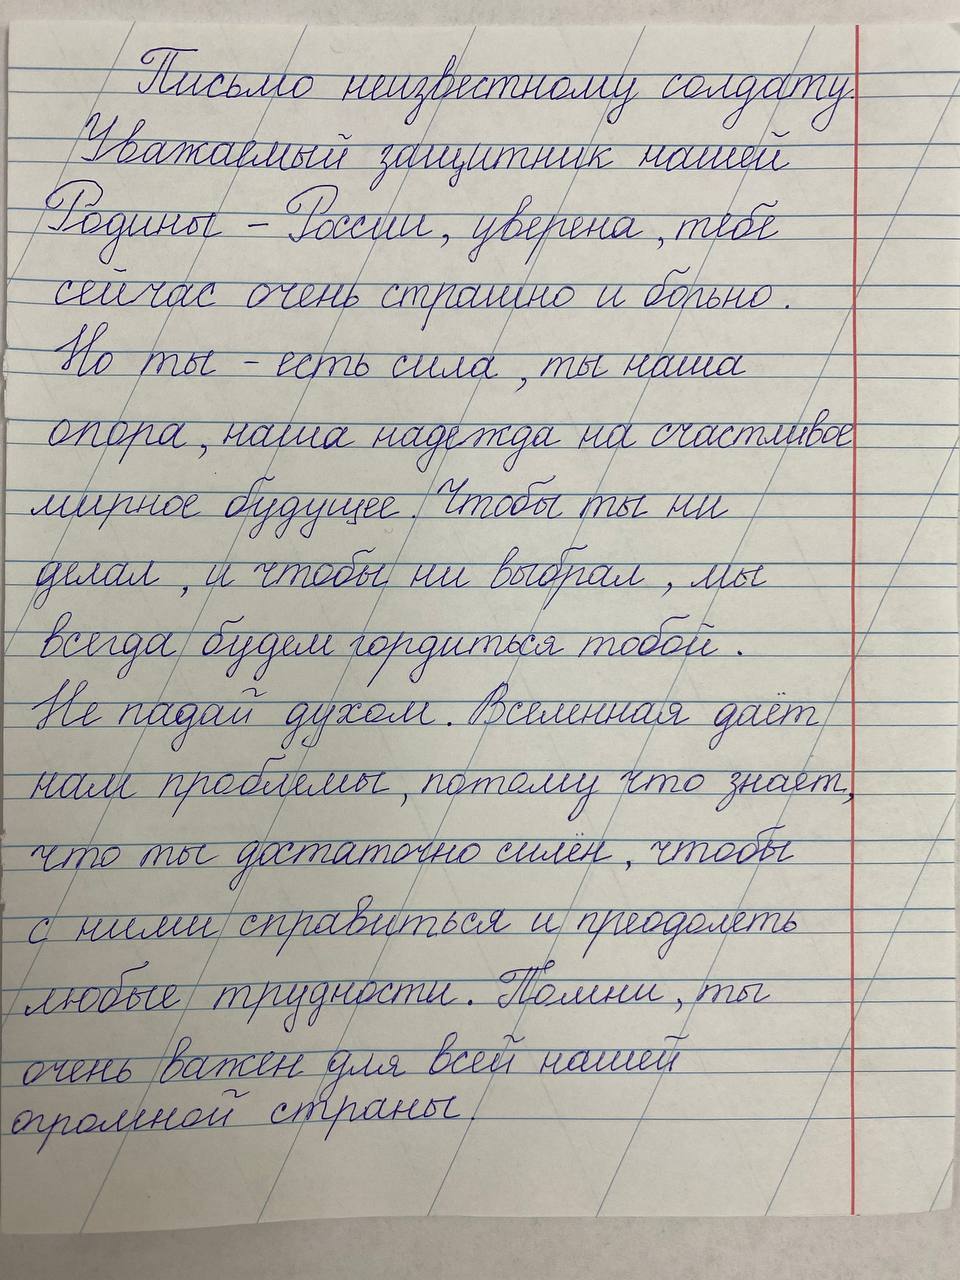 Письмо неизвестному солдату.
Уважаемый защитник нашей
Родины - России, уверена, тебе
сейчас очень страшно и больно.
Но ты - есть сила, ты наша
опора, наша надежда на счастливое
мирное будущее. Чтобы ты ни
делал, и чтобы ни выбрал, мы
всегда будем гордиться тобой.
Не падай духом. Вселенная даёт
нам проблемы, потому что знает,
что ты достаточно силён, чтобы
с ними справиться и преодолеть
любые трудности. Помни, ты
очень важен для всей нашей
огромной страны.